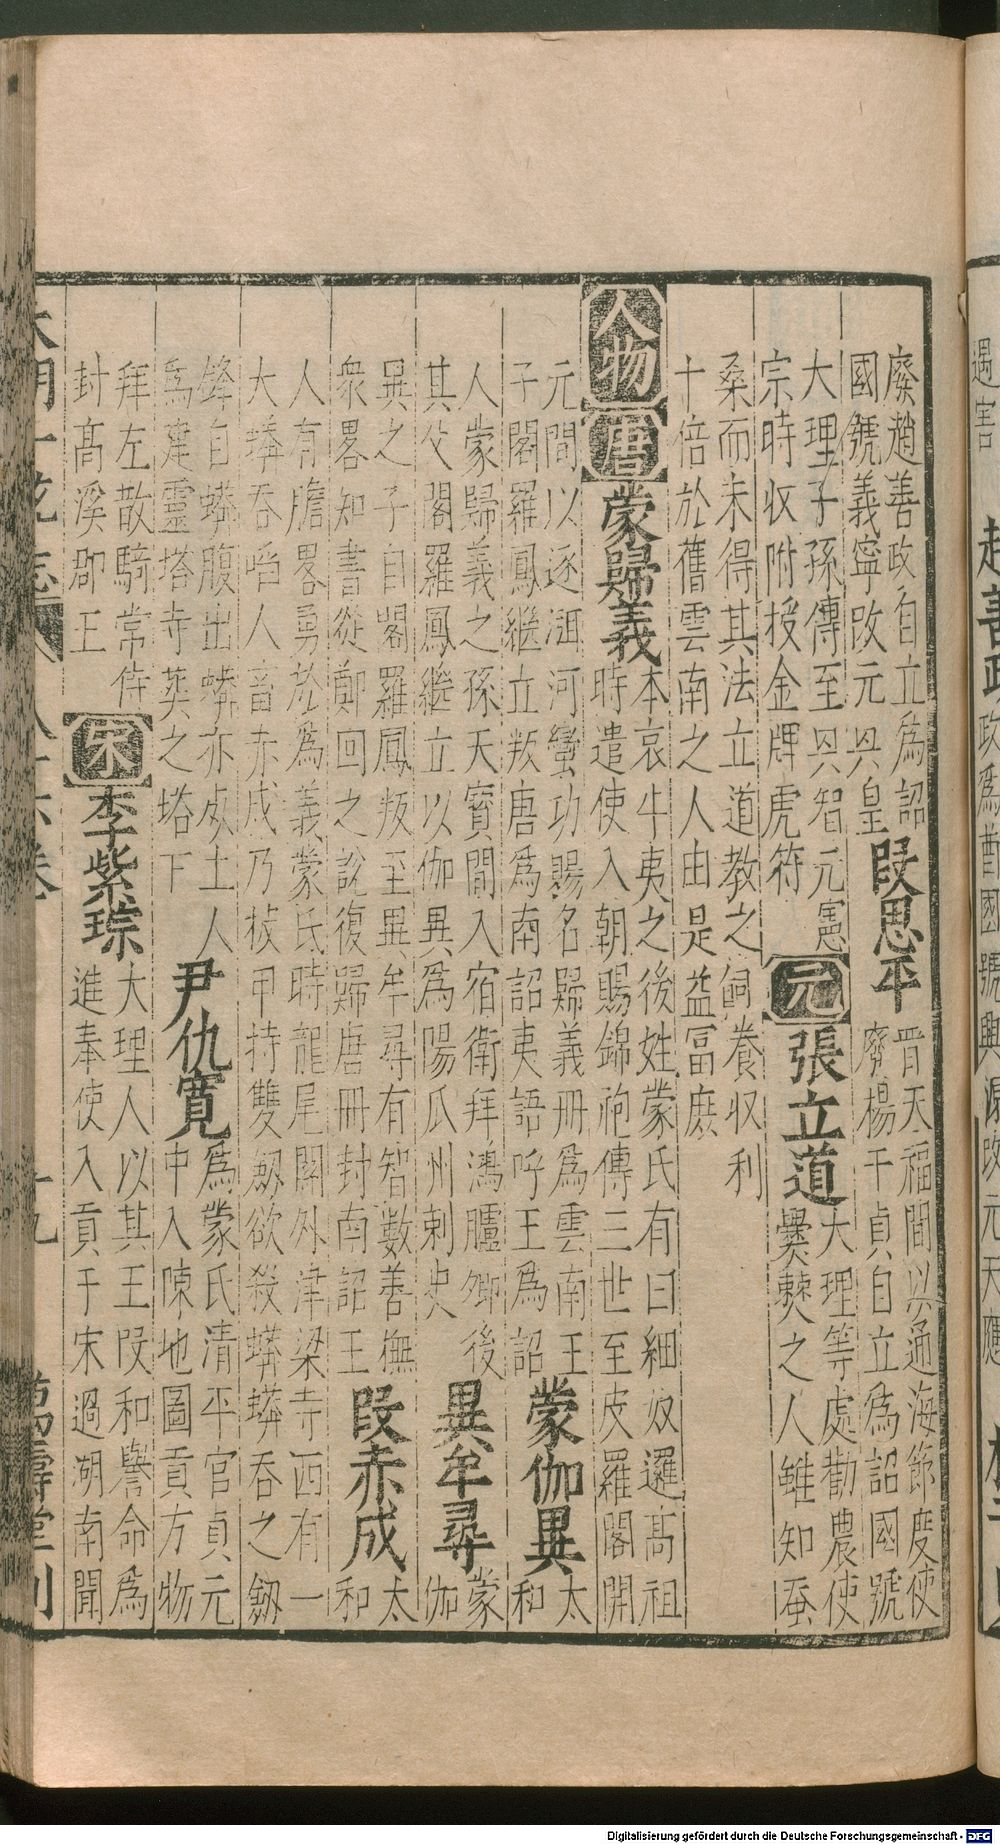 廢趙善政自立為詔
國號義寧改元興皇
段思平
晋天福間以通海節度使
廢楊干貞自立為詔國號
大理子孫傳至興智元憲
宗時收附授金牌虎符
元
張立道
大理等處勸農使
爨僰之人雖知蚕
桑而未得其法立道教之飼養収利
十倍於舊雲南之人由是益冨庶
人物
唐
蒙歸義
本哀牛夷之後姓蒙氏有曰細奴邏高祖
時遣使入朝賜錦袍傳三世至皮羅閣開
元間以逐洱河蠻功賜名歸義冊為雲南王
子閣羅鳳繼立叛唐為南詔夷語呼王為詔
蒙伽異
太和
人蒙歸義之孫天寶間入宿衛拜鴻臚卿後
其父閣羅鳳繼立以伽異為陽瓜州刺史
異牟尋
蒙伽
異之子自閣羅鳳叛至異牟尋有智數善撫
衆畧知書從鄭回之說復歸唐冊封南詔王
段赤成
太和
人有膽畧勇於為義蒙氏時龍尾關外津梁寺西有一
大蟒吞啗人畜赤成乃披甲持雙劔欲殺蟒蟒吞之劔
鋒自蟒腹出蟒亦死土人
為建靈塔寺塟之塔下
尹仇寛
為蒙氏清平官貞元
中入陳地圖貢方物
拜左散騎常侍
封高溪郡王
宋
李紫琮
大理人以其王段和譽命為
進奉使入貢于宋過湖南聞
大明一统志
八十六卷
十九
萬壽堂刊
遇害
趙善政
政為曹國號興源改元天應
Digitalisierung gefördert durch die Deutsche Forschungsgemeinschaft - DFG